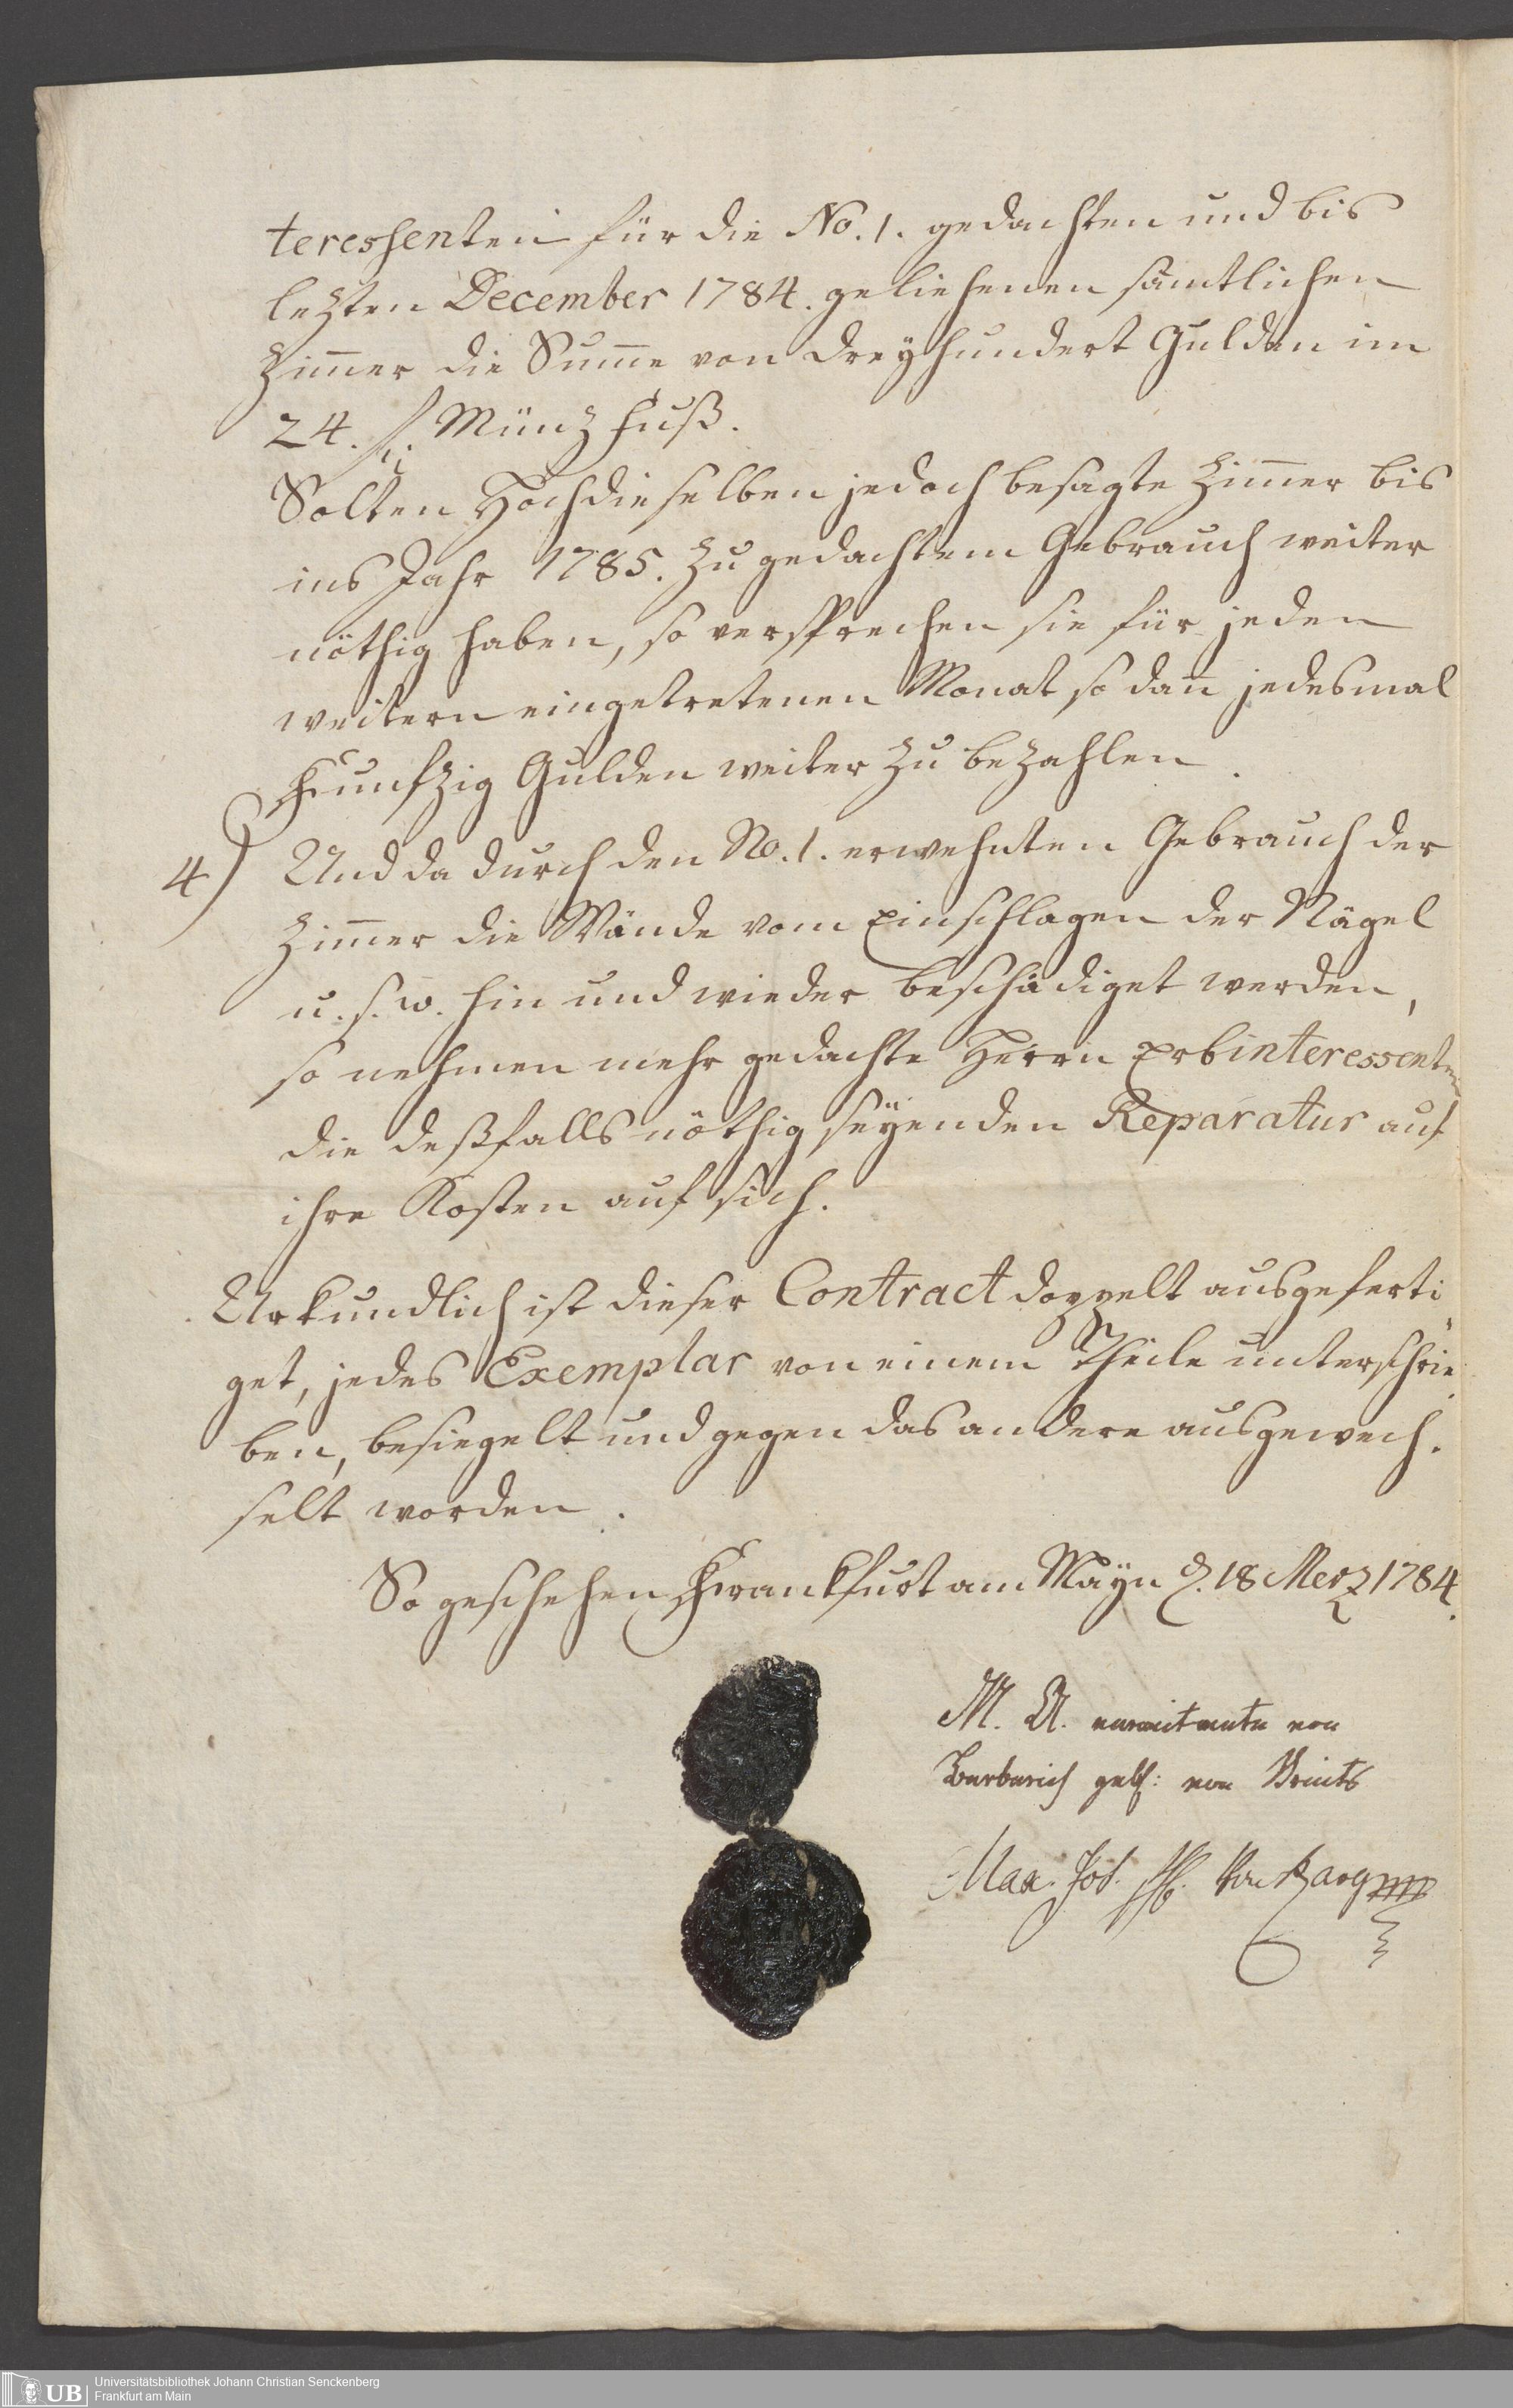 teressenten für die No. 1. gedachten und bis
lezten December 1784. geliehenen sämtlichen
Zim̄er die Sum̄e von dreyhundert Gulden im
24. fl. Münz Fuß.
Solten Hochdieselben jedoch besagte Zim̄er bis
ins Jahr 1785. zu gedachtem Gebrauch weiter
nöthig haben, so versprechen sie für jeden
weitern eingetretenen Monat so dan̄ jedesmal
Funfzig Gulden weiter zu bezahlen.
4) Und da durch den No. 1. erwehnten Gebrauch der
Zim̄er die Wände vom Einschlagen der Nägel
u. s. w. hin und wieder beschädiget werden,
so nehmen mehr gedachte Herrn Erbinteressenten
die deßfalls nöthig seÿenden Reparatur auf
ihre Kosten auf sich.
Urkundlich ist dieser Contract doppelt ausgeferti
get, jedes Exemplar von einem Theile unterschrie
ben, besiegelt und gegen das andere ausgewech.
selt worden.
So geschehen Frankfurt am Mayn d. 18 Merz 1784.
M. A. verwittweте von
Berberich geb: von Vrints
Max. Jos. von
Universitätsbibliothek Johann Christian Senckenberg
UB Frankfurt am Main